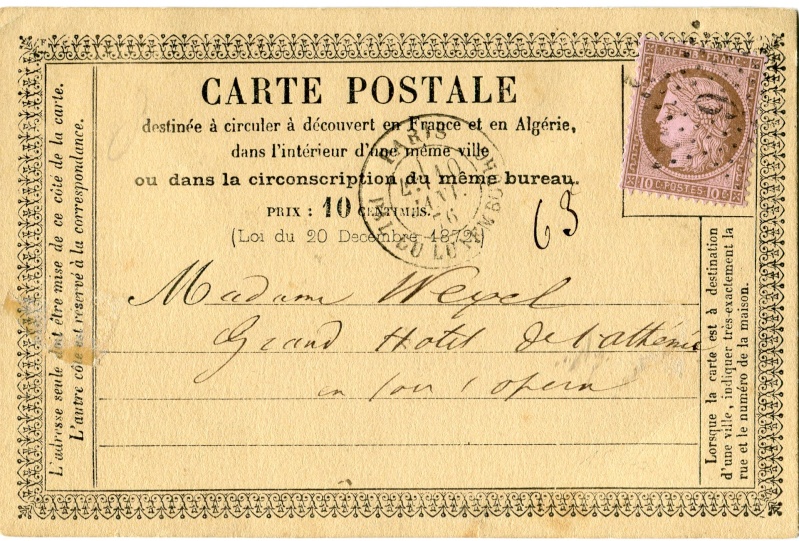 CARTE POSTALE
destinée à circuler à découvert en France et en Algérie,
dans l'intérieur d'une même ville
ou dans la circonscription du même bureau.
PRIX : 10 CENTIMES.
(Loi du 20 Décembre 1872)
REPUB FRANC
10 C POSTES 10 C
PARIS
JANV.
76
Bd
63
Madame Weyel
Grand Hotel de l'athénée
opera
L'adresse seule doit être mise de ce côté de la carte.
L'autre côté est réservé à la correspondance.
Lorsque la carte est à destination
d'une ville, indiquer très-exactement la
rue et le numéro de la maison.